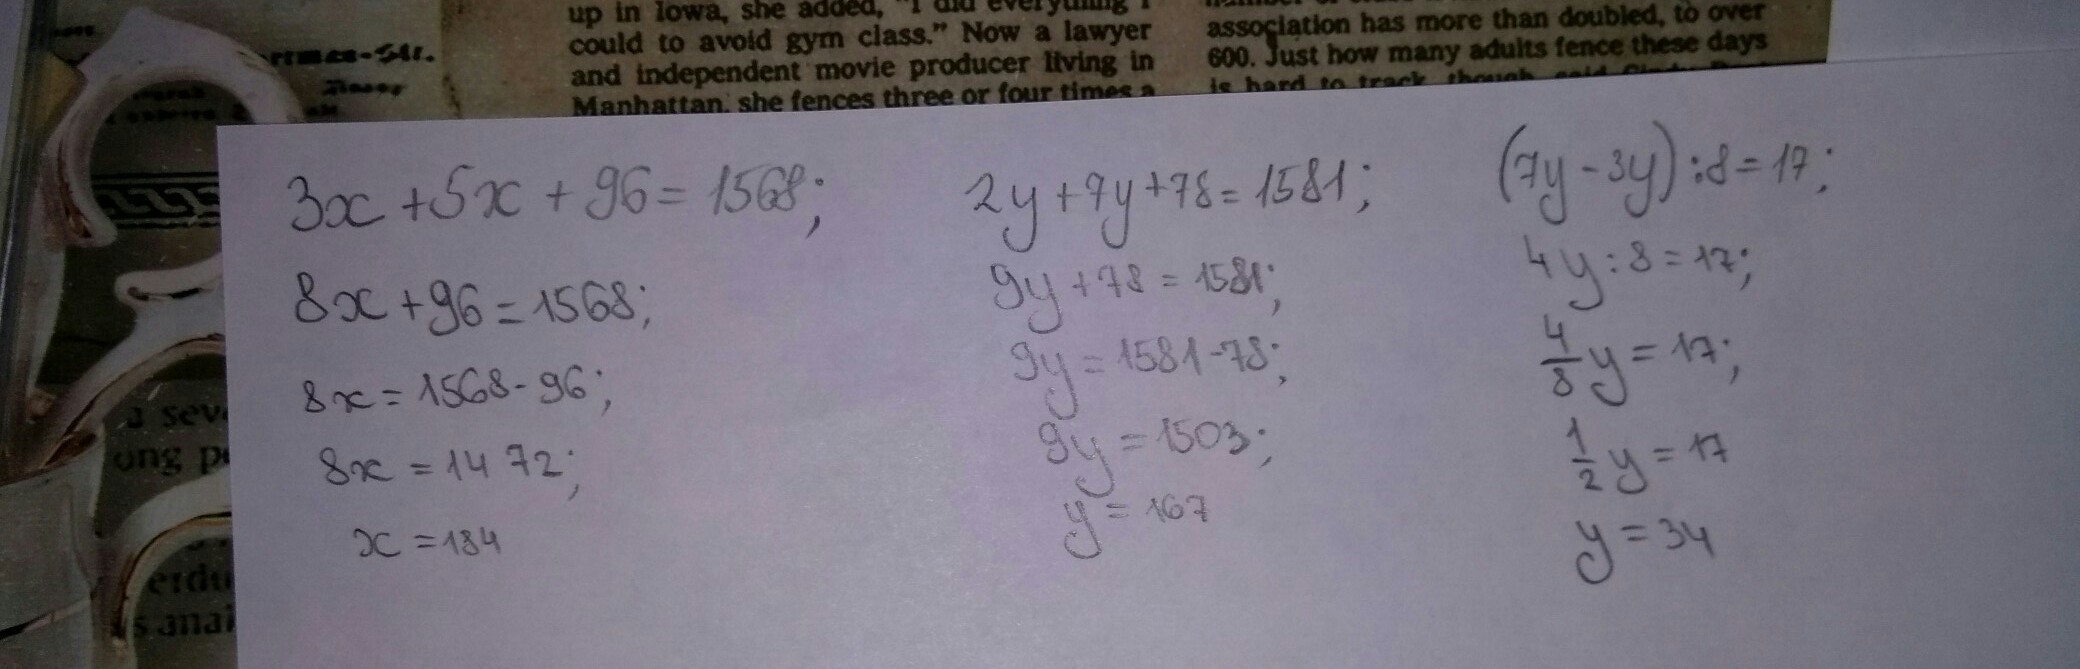 up in Iowa, she added, "I did everything I
could to avoid gym class." Now a lawyer
and independent movie producer living in
Manhattan, she fences three or four times a
association has more than doubled, to over
600. Just how many adults fence these days
is hard to track, though, said
3x + 5x + 96 = 1568;
8x + 96 = 1568;
8x = 1568 - 96;
8x = 1472;
x = 184
2y + 7y + 78 = 1581;
9y + 78 = 1581;
9y = 1581 - 78;
9y = 1503;
y = 167
(7y - 3y) : 8 = 17;
4y : 8 = 17;
4/8 y = 17;
1/2 y = 17
y = 34